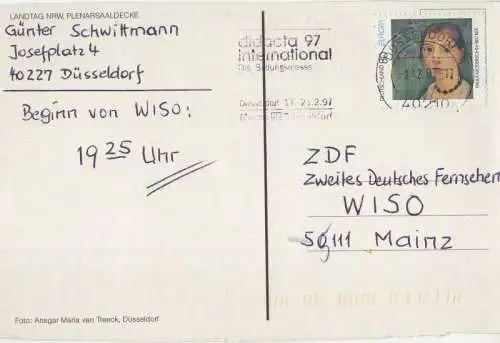 LANDTAG NRW, PLENARSAALDECKE
Günter Schwittmann
Josefplatz 4
40227 Düsseldorf
Beginn von WISO:
19 25 Uhr
Foto: Ansgar Maria van Treeck, Düsseldorf
didacta 97
international
Die Bildungsmesse
Düsseldorf 17.-21.2.97
DEUTSCHLAND
EUROPA
DÜSSELDORF
97
40210
ZDF
Zweites Deutsches Fernsehen
WISO
55111 Mainz